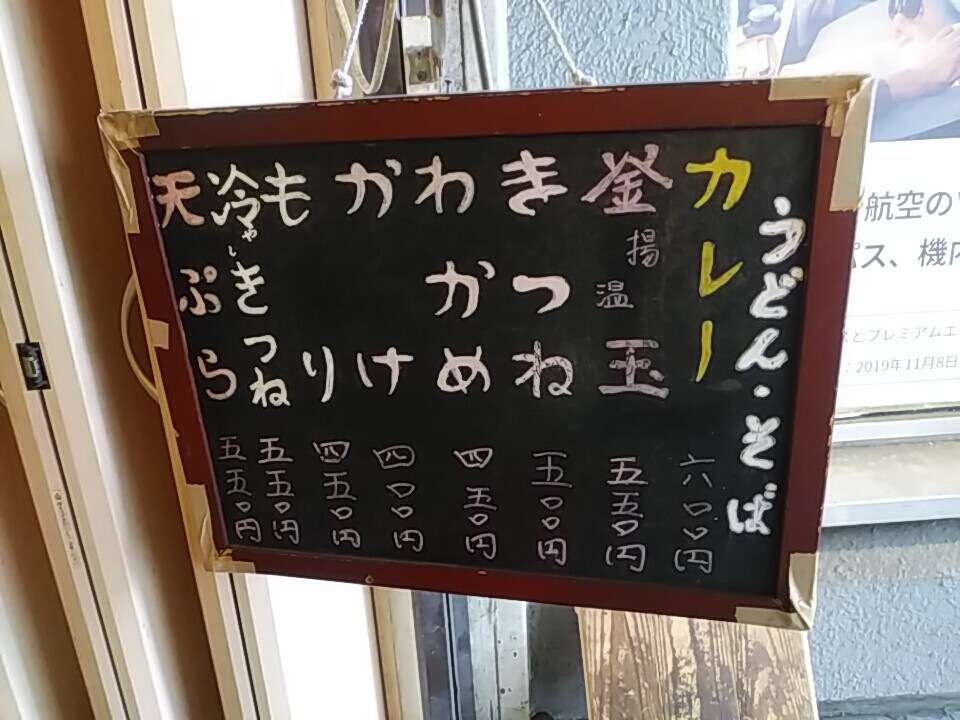 うどん・そば
カレー 六〇〇円
釜揚温玉 五五〇円
きつね 五〇〇円
わかめ 四五〇円
かけ 四〇〇円
もり 四五〇円
冷やしきつね 五五〇円
天ぷら 五五〇円
航空の
パス、機内
スとプレミアムエ
：2019年11月8日